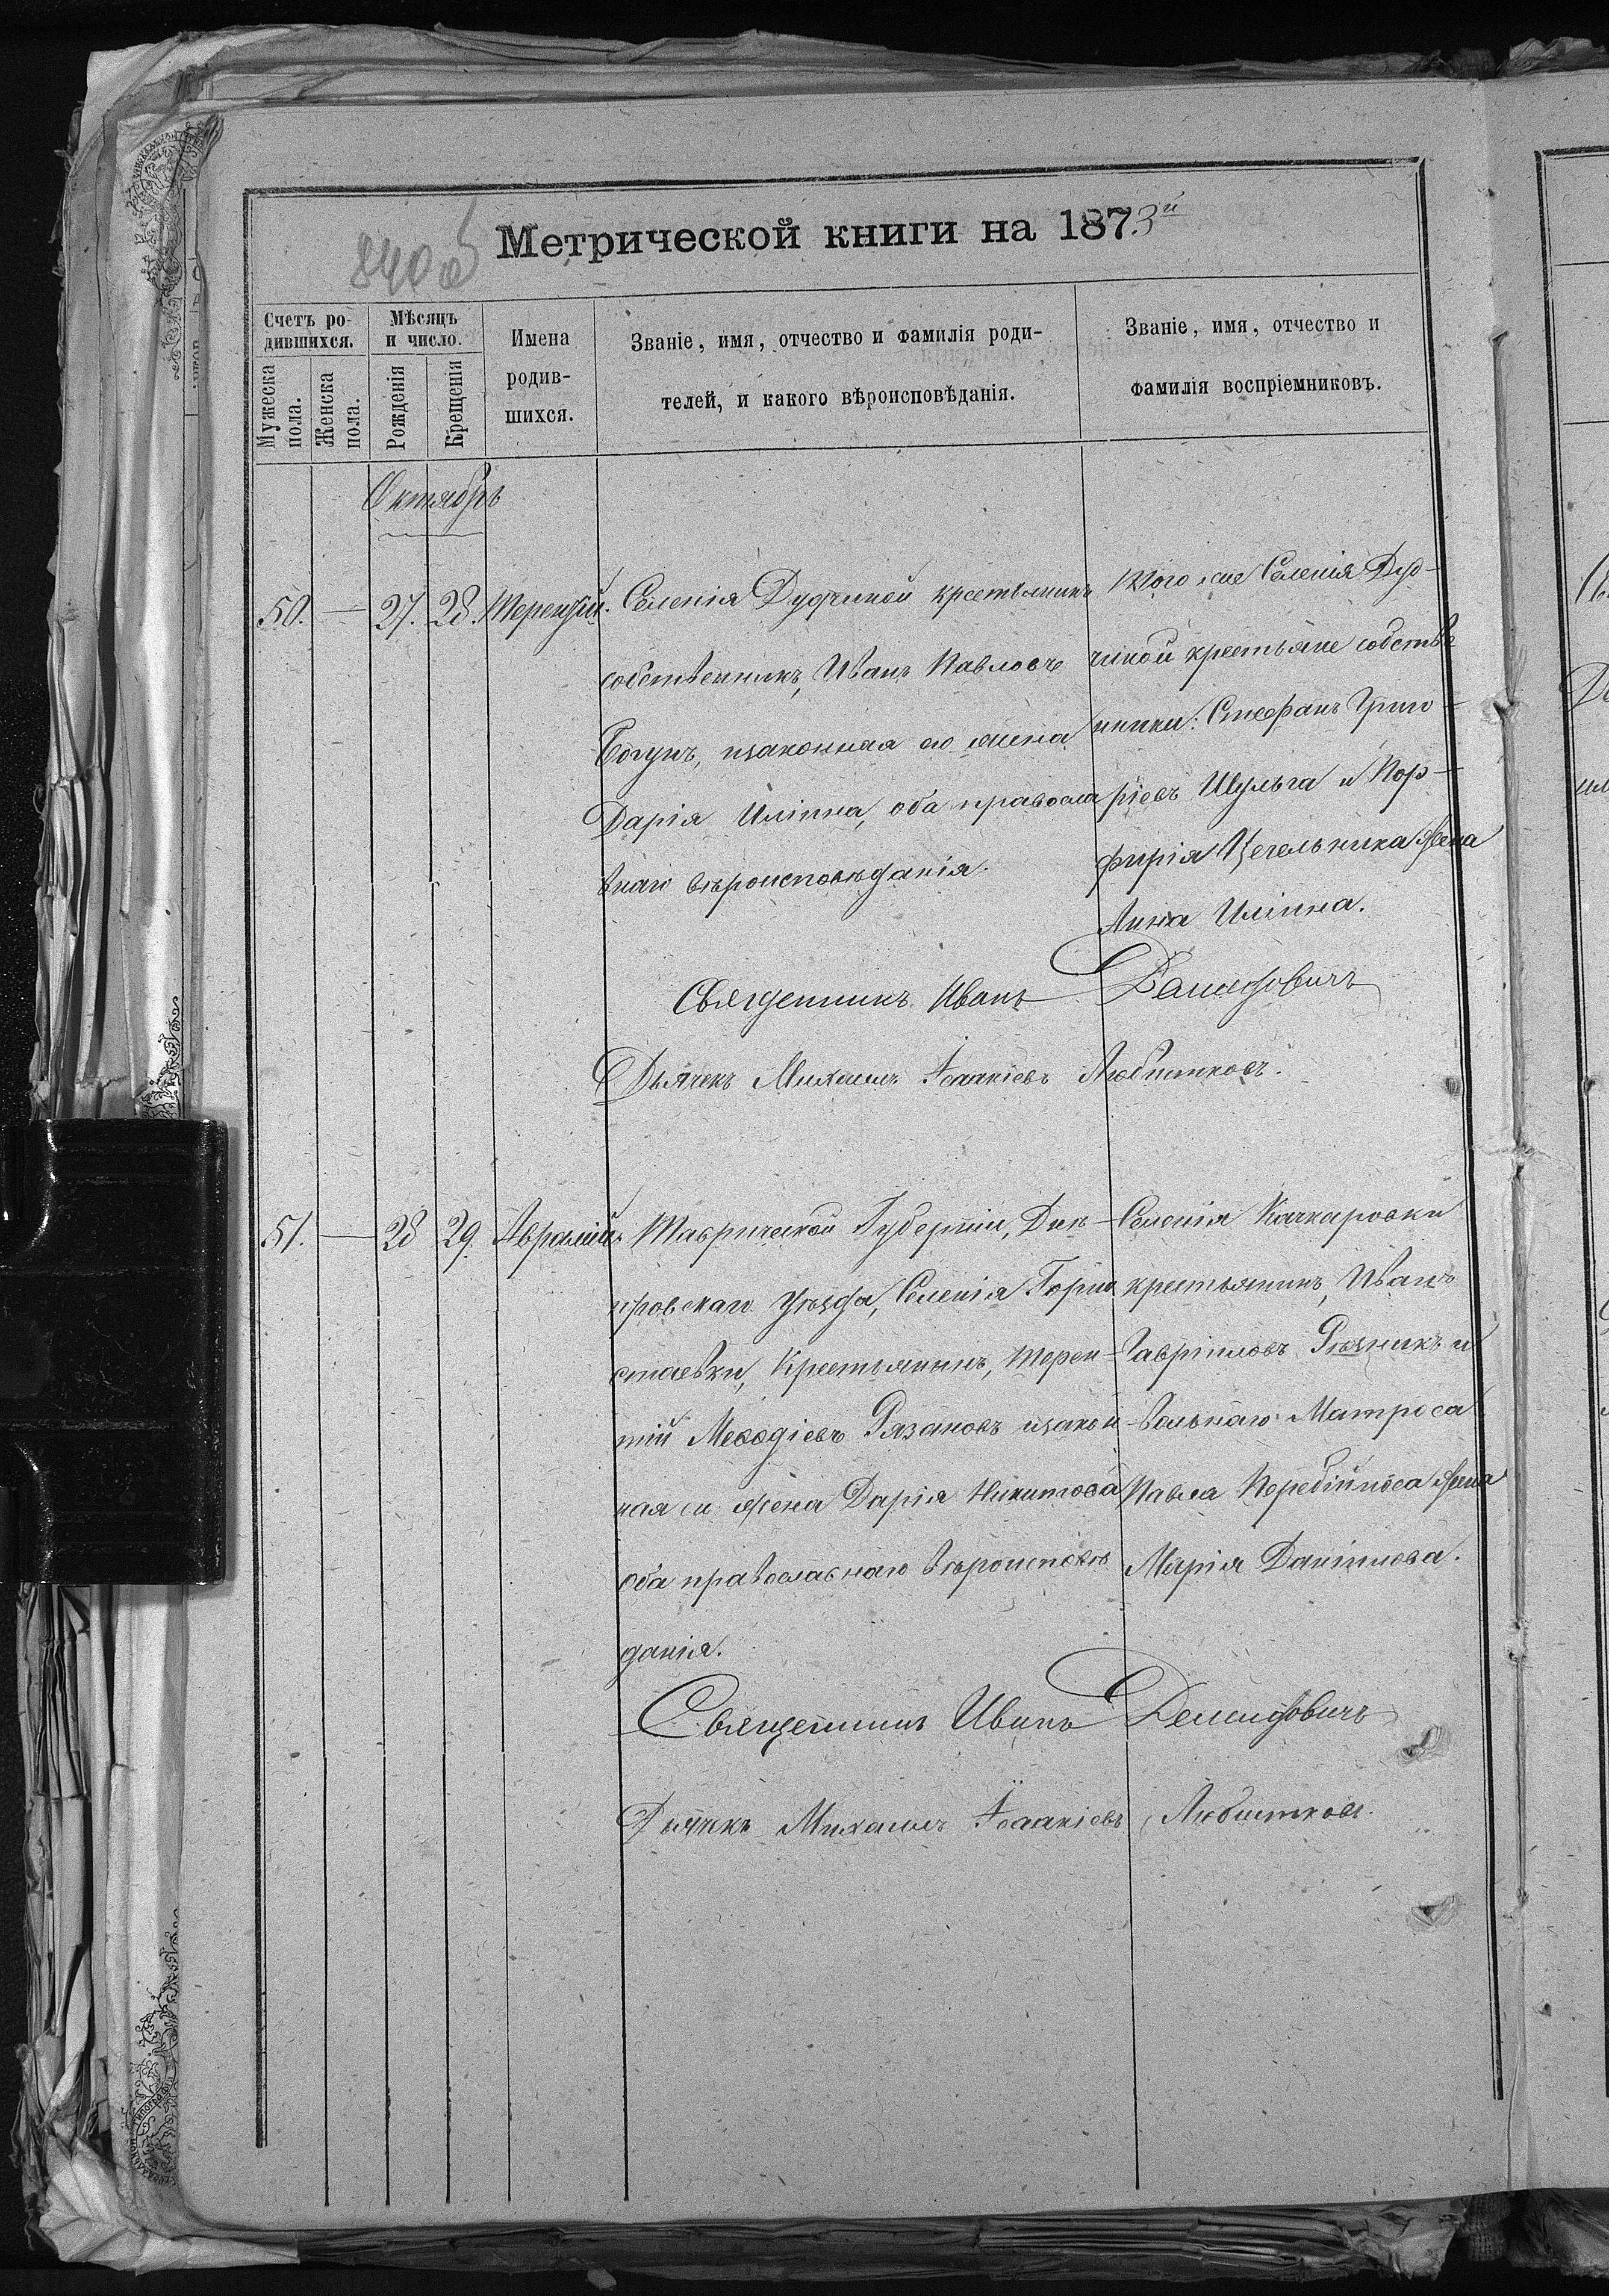 840 об
Метрической книги на 1873й
Счетъ ро-
дившихся.
Мѣсяцъ
и число.
Имена
родив-
шихся.
Званіе, имя, отчество и фамилія роди-
телей, и какого вѣроисповѣданія.
Званіе, имя, отчество и
фамилія воспріемниковъ.
Мужеска
пола.
Женска
пола.
Рожденія
Крещенія
Октябрь
50. — 27. 28. Терентій.
Селенія Дудчиной крестьянинъ
собственникъ, Иванъ Павловъ
Богунъ, изаконная его жена
Дарія Иліина, оба правосла
внаго вѣроисповѣданія.
Того же Селенія Дуд-
чиной крестьяне собстве
нники: Стефанъ Григо-
ріевъ Шульга и Пор-
фирія Цегельника жена
Анна Иліина.
Священникъ Иванъ Демидовичъ
Дьячекъ Михаилъ Исаакіевъ Любитковъ.
51. — 28 29. Аврамій.
Таврической Губерніи, Днѣ-
провскаго уѣзда, Селенія Горно
стаевки, Крестьянинъ, Терен-
тій Меѳодіевъ Рязановъ изакон
ная его жена Дарія Никитова
оба православнаго вѣроисповѣ
данія.
Селенія Качкаровки
крестьянинъ, Иванъ
Гавріиловъ Рѣзникъ и
Вольнаго Матроса
Павла Перебійноса жена
Марія Даніилова.
Священникъ Иванъ Демидовичъ
Дьячекъ Михаилъ Исаакіевъ Любитковъ.